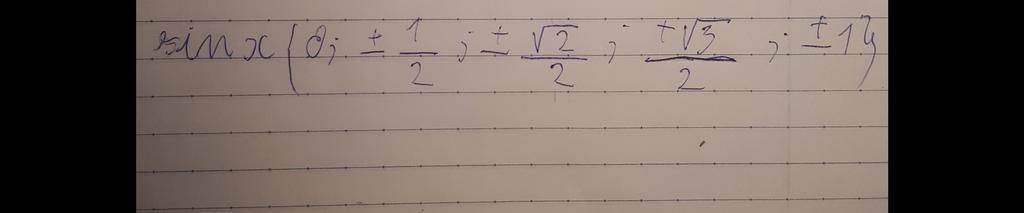 sin x {0; ± 1/2; ± √2/2; ±√3/2; ±1}